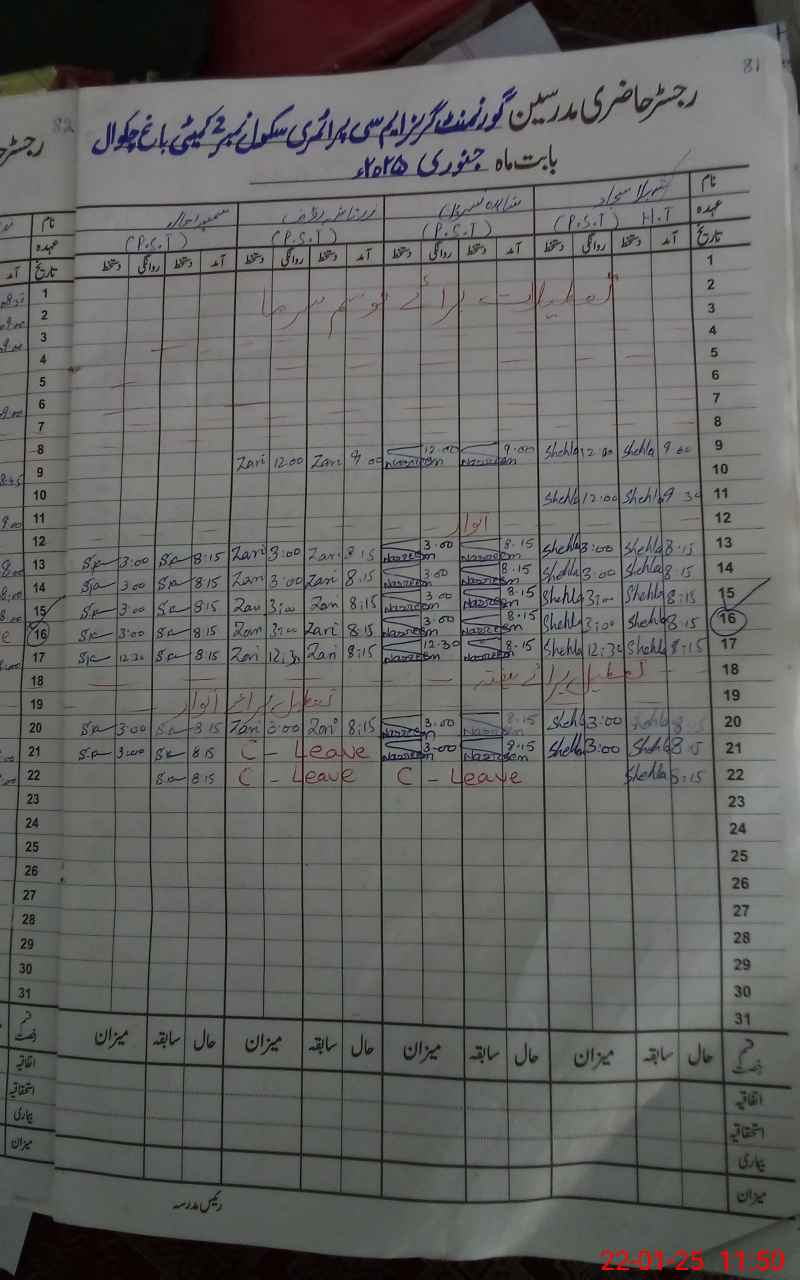 81
رجسٹر حاضری مدرسین گورنمنٹ گرلز ایم سی پرائمری سکول نمبر 2 کمیٹی باغ چکوال
بابت ماہ جنوری ۲۰۲۵ء
82
رجسٹر
نام
نام
عہدہ (P.S.T) H.T (P.S.T) (P.S.T) (P.S.T)
عہدہ
تاریخ آمد دستخط روانگی دستخط آمد دستخط روانگی دستخط آمد دستخط روانگی دستخط آمد دستخط روانگی دستخط
تاریخ
1
2 تعطیلات برائے موسم سرما
3
4
5
6
7
8
9 9 00 Shehla 12:00 Shehla 9.00 Nasreem 12.00 Nasreem 9 00 Zari 12.00 Zari
10
11 9 30 Shehla 12:00 Shehla
12 اتوار
13 8:15 Shehla 3:00 Shehla 8.15 Nasreem 3.00 Nasreem 8 15 Zari 3:00 Zari 8:15 3:00
14 8.15 Shehla 3:00 Shehla 8.15 Nasreem 3.00 Nasreem 8.15 Zari 3:00 Zari 8:15 3.00
15 8:15 Shehla 3:00 Shehla 8.15 Nasreem 3.00 Nasreem 8:15 Zari 3:00 Zari 8:15 3:00
16 8:15 Shehla 3:00 Shehla 8.15 Nasreem 3.00 Nasreem 8:15 Zari 3:00 Zari 8:15 3:00
17 8:15 Shehla 12:30 Shehla 8.15 Nasreem 12.30 Nasreem 8:15 Zari 12:30 Zari 8:15 12:30
18 تعطیل برائے ہفتہ
19 تعطیل برائے اتوار
20 8:15 Shehla 3:00 Sheh 8.15 Nasreem 3.00 Nasreem 8:15 Zari 3:00 Zari 8:15 3:00
21 8:15 Shehla 3:00 Shehla 8.15 Nasreem 3.00 Nasreem C - Leave 8:15 3:00
22 8:15 Shehla C - Leave C - Leave 8:15
23
24
25
26
27
28
29
30
31
1
2
3
4
5
6
7
8
9
10
11
12
13
14
15
16
17
18
19
20
21
22
23
24
25
26
27
28
29
30
31
قسم رخصت حال سابقہ میزان حال سابقہ میزان حال سابقہ میزان حال سابقہ میزان
قسم رخصت
اتفاقیہ
استحقاقیہ
بیماری
میزان
اتفاقیہ
استحقاقیہ
بیماری
میزان
رئیس مدرسہ
22-01-25 11:50